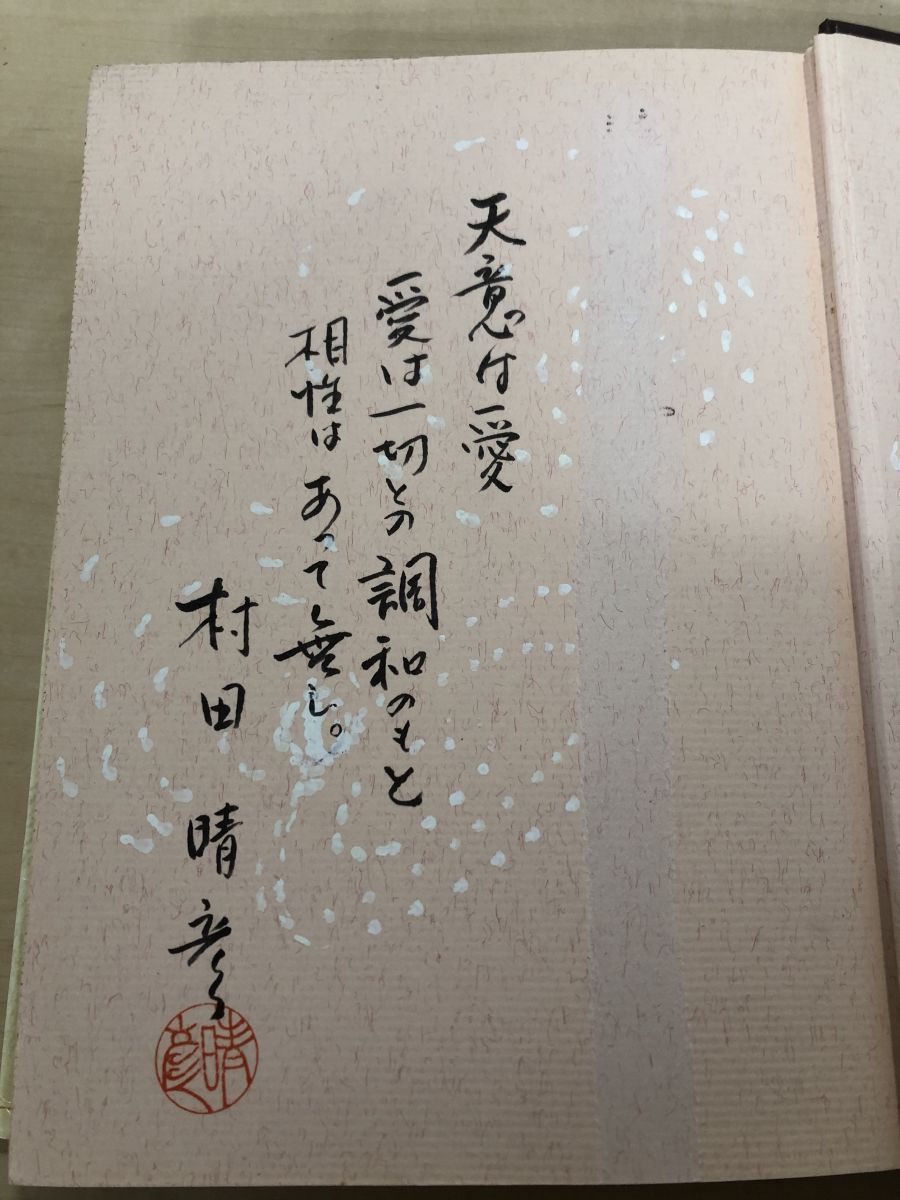 天意は愛
愛は一切との調和のもと
相性はあって無し。
村田晴彦
晴彦